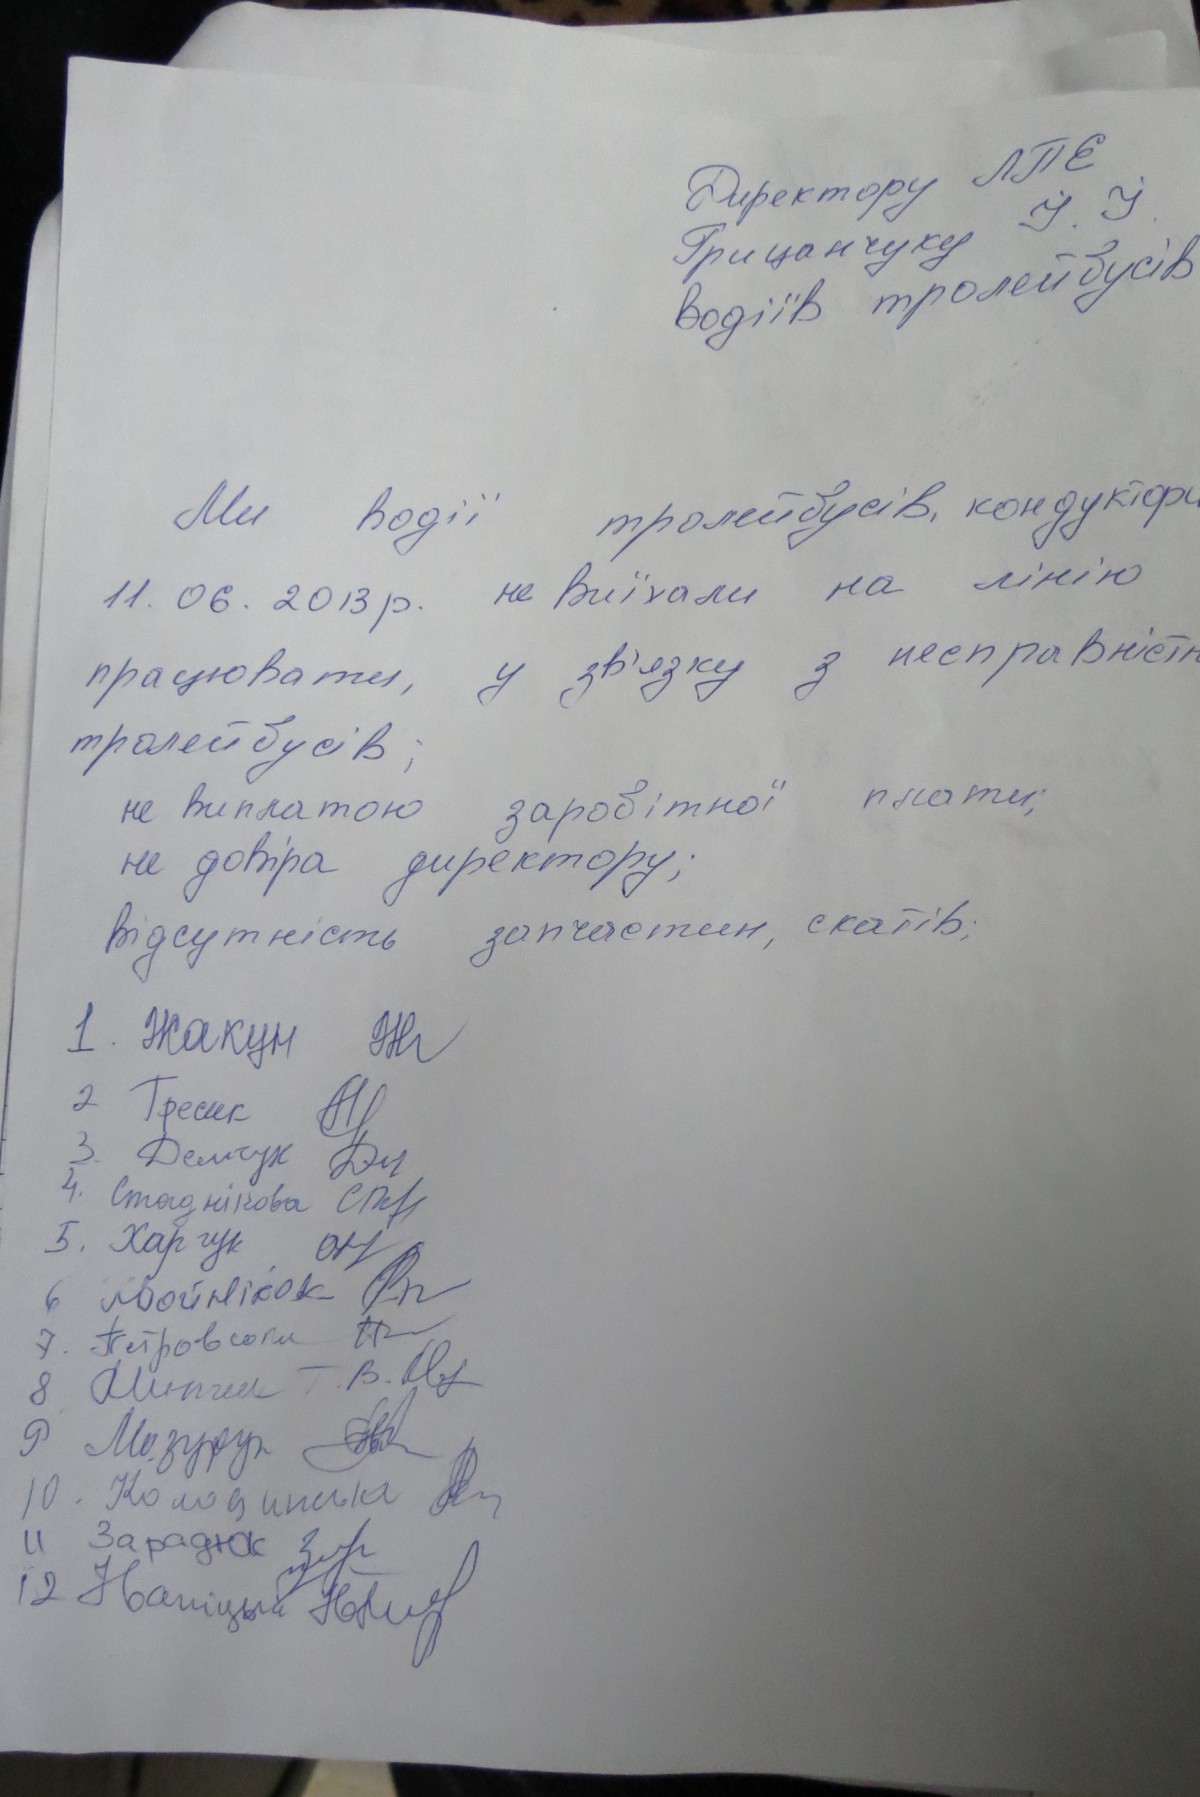 Директору ЛПЕ
Грицанчуку Й. Й.
водіїв тролейбусів
Ми водії тролейбусів, кондуктори
11.06.2013р. не виїхали на лінію
працювати, у зв'язку з несправністю
тролейбусів;
не виплатою заробітної плати;
не довіра директору;
відсутність запчастин, скатів;
1. Жакун
2 Тресак
3. Демчук
4. Стаднікова
5. Харчук
6
7. Петровська
8 Т.В.
9 Мазурук
10. Колодинська
11 Зарадюк
12